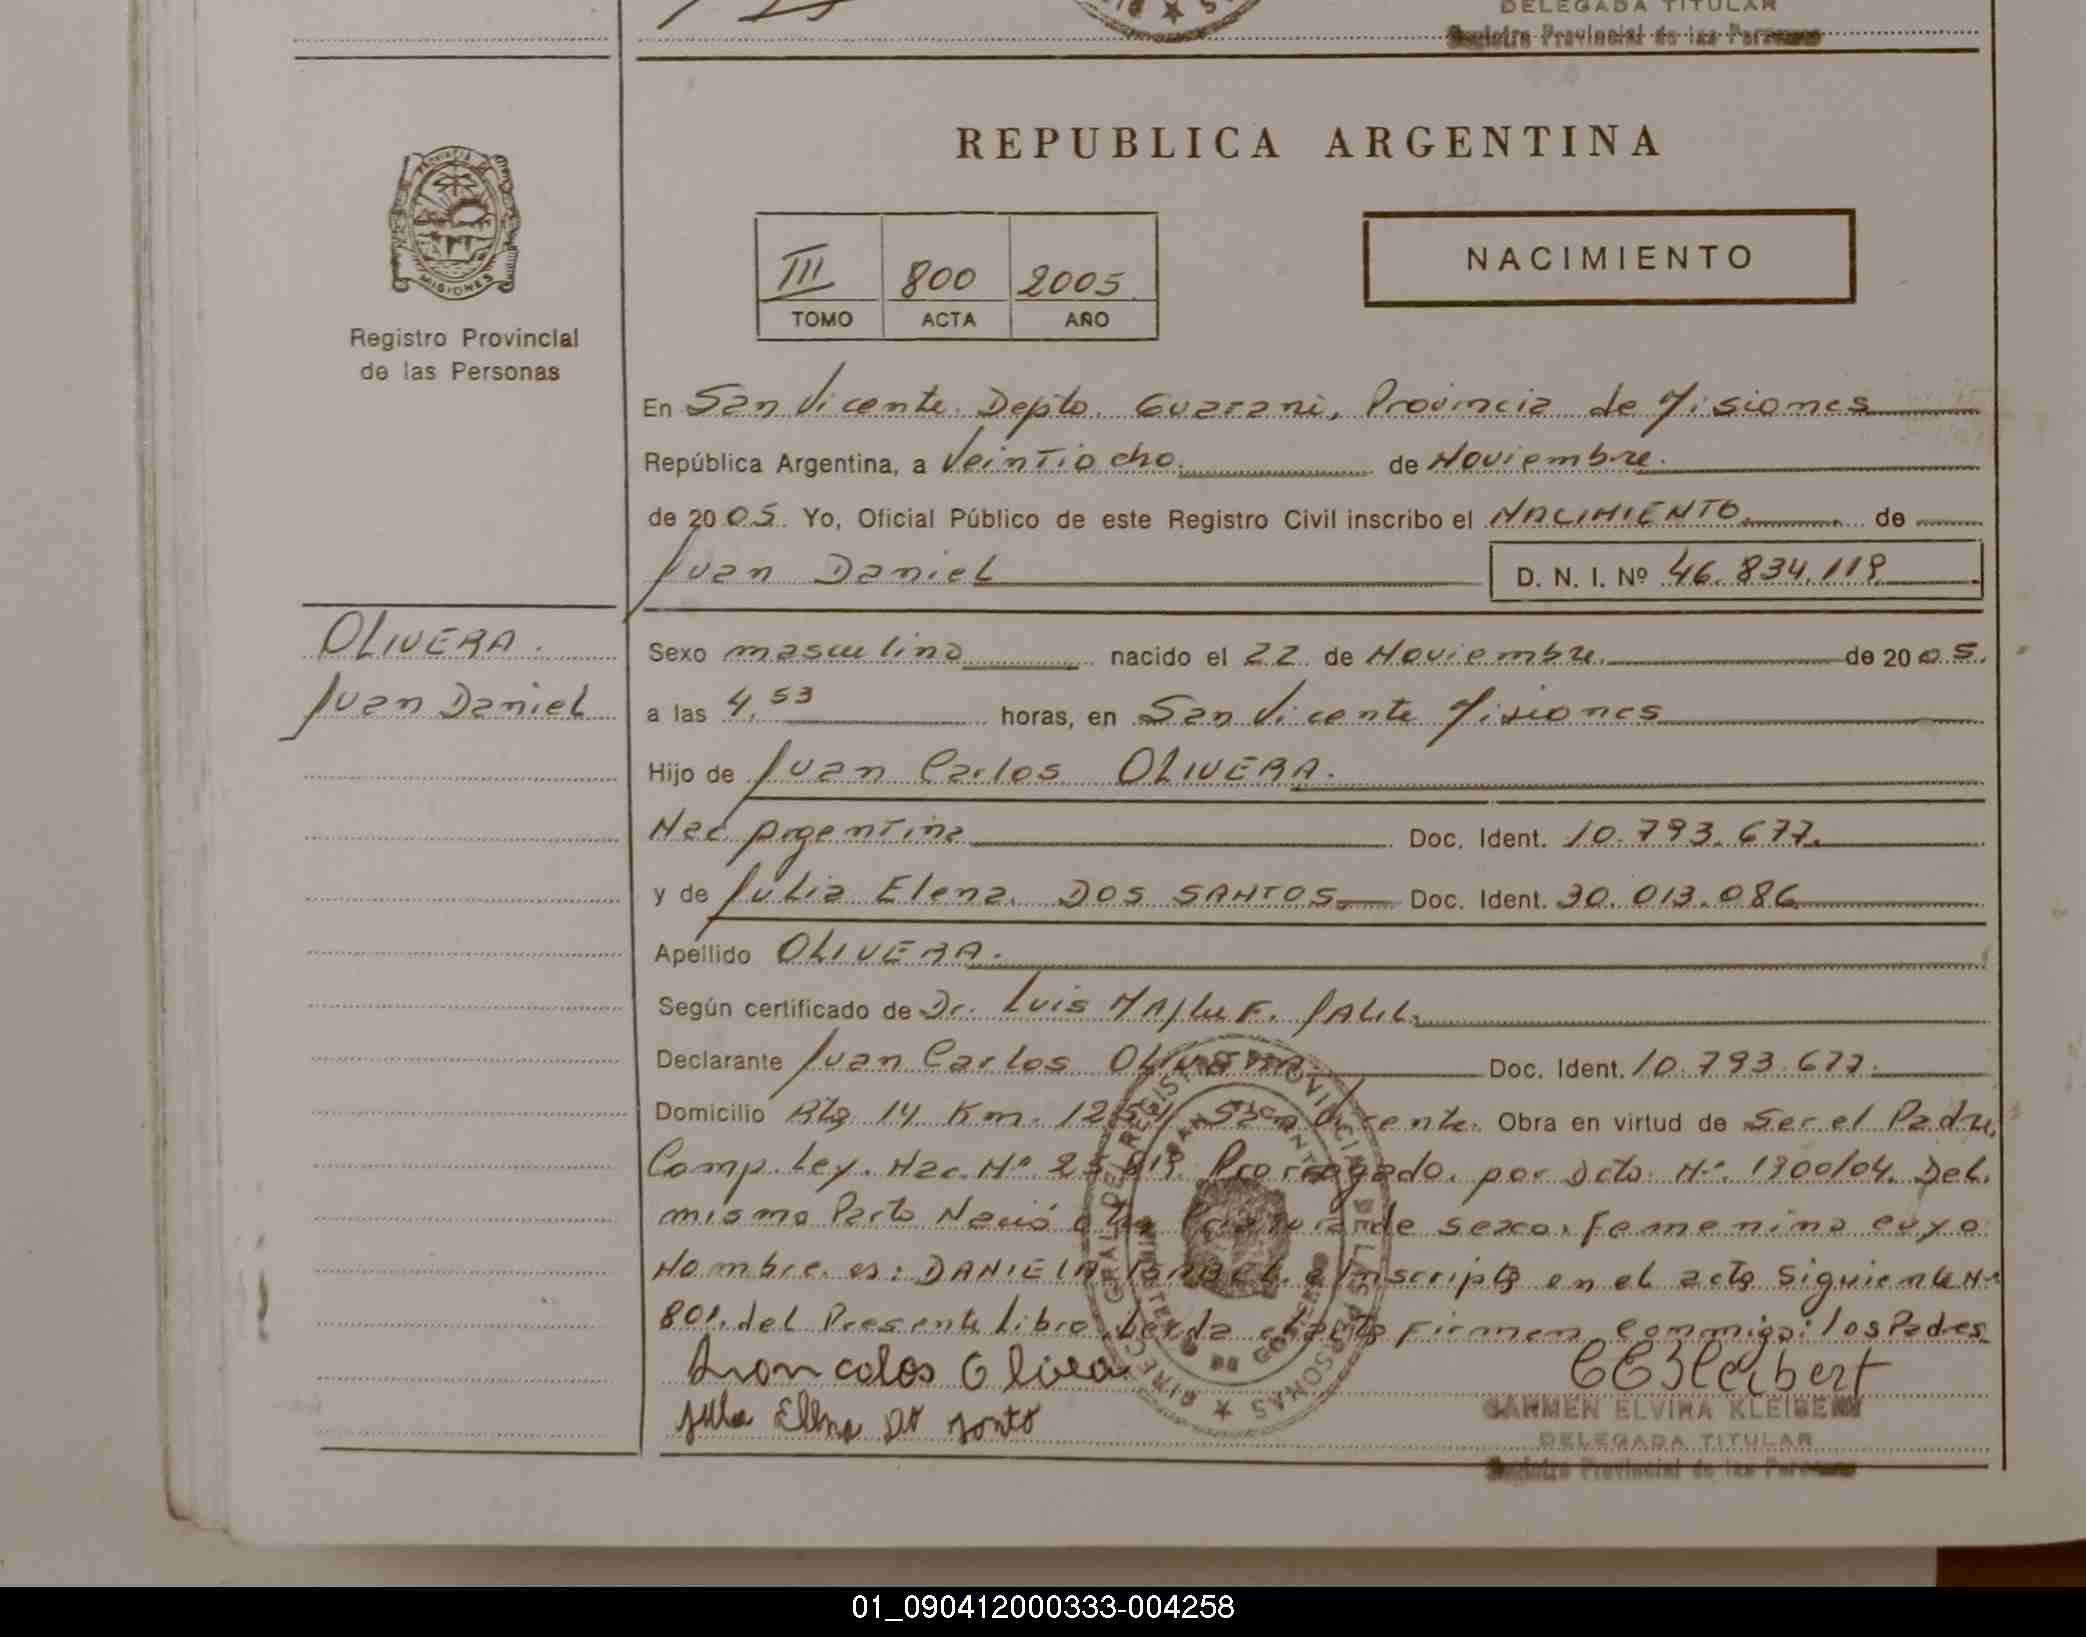 DELEGADA TITULAR
Registro Provincial de las Personas
REPUBLICA ARGENTINA
PROVINCIA DE
MISIONES
Registro Provincial
de las Personas
III 800 2005
TOMO ACTA AÑO
NACIMIENTO
En San Vicente Depto. Guarani, Provincia de Misiones
República Argentina, a Veintiocho de Noviembre.
de 2005. Yo, Oficial Público de este Registro Civil inscribo el NACIMIENTO de
Juan Daniel D. N. I. Nº 46.834.118
OLIVERA.
Juan Daniel
Sexo masculino nacido el 22 de Noviembre de 2005.
a las 4,53 horas, en San Vicente Misiones
Hijo de Juan Carlos OLIVERA.
Nac. Argentina Doc. Ident. 10.793.677.
y de Julia Elena DOS SANTOS. Doc. Ident. 30.013.086
Apellido OLIVERA.
Según certificado de Dr. Luis
Declarante Juan Carlos OLIVERA Doc. Ident. 10.793.677.
Domicilio Rta 14 Km. San Vicente. Obra en virtud de Ser el Padre,
Comp. Ley. Nac. Nº Prorrogado por Dcto Nº 1900/04. Del
mismo Parto Nació otra Criatura de sexo, femenino cuyo
Nombre es: DANIELA Inscripta en el acta siguiente Nº
801. del Presente libro, Leida el acta firman conmigo: los Padres
Juan calos Olivera
Julia Elena
CARMEN ELVIRA KLEIBERT
DELEGADA TITULAR
Registro Provincial de las Personas
01_090412000333-004258